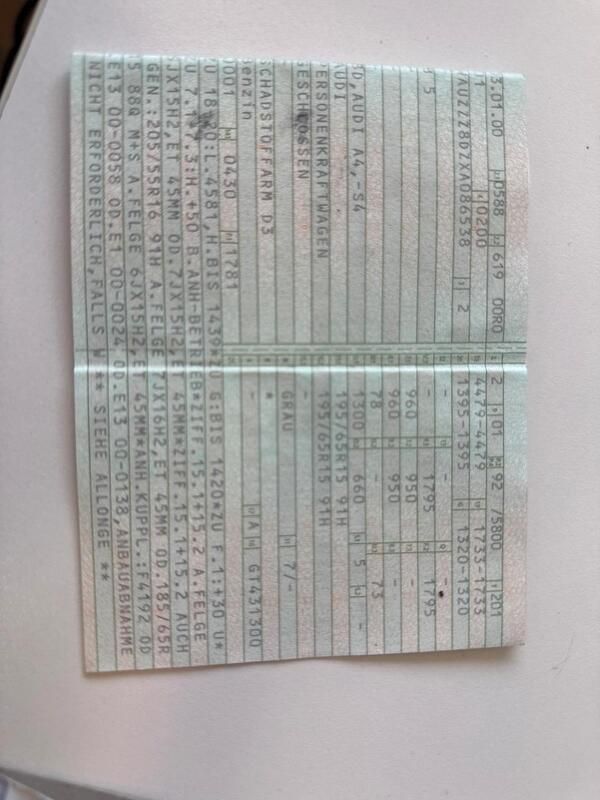 3.01.00 0588 619 00R0 2 01 92 /5800 201
1 0200 4479-4479 1733-1733
AUZZZ8DZXA086538 2 1395-1395 1320-1320
5 - 1795 - 1795
960 950 -
960 950 -
D,AUDI A4,-S4 78 - 73
UDI 1300 660 5 -
ERSONENKRAFTWAGEN 195/65R15 91H
ESCHLOSSEN 195/65R15 91H
CHADSTOFFARM D3 GRAU 7/-
enzin *
001 0430 1781 - A GT431300
U 18 :L.4581,H.BIS 1439*ZU G:BIS 1420*ZU F.1:+30 U*
U 7. 7.3:H.+50 B.ANH-BETRIEB*ZIFF.15.1+15.2 A.FELGE
JX15H2,ET 45MM OD.7JX15H2,ET 45MM*ZIFF.15.1+15.2 AUCH
GEN.:205/55R16 91H A.FELGE 7JX16H2,ET 45MM OD.185/65R
5 88Q M+S A.FELGE 6JX15H2,ET 45MM*ANH.KUPPL.:F4192 OD
E13 00-0058 OD.E1 00-0024 OD.E13 00-0138,ANBAUABNAHME
NICHT ERFORDERLICH,FALLS ** SIEHE ALLONGE **